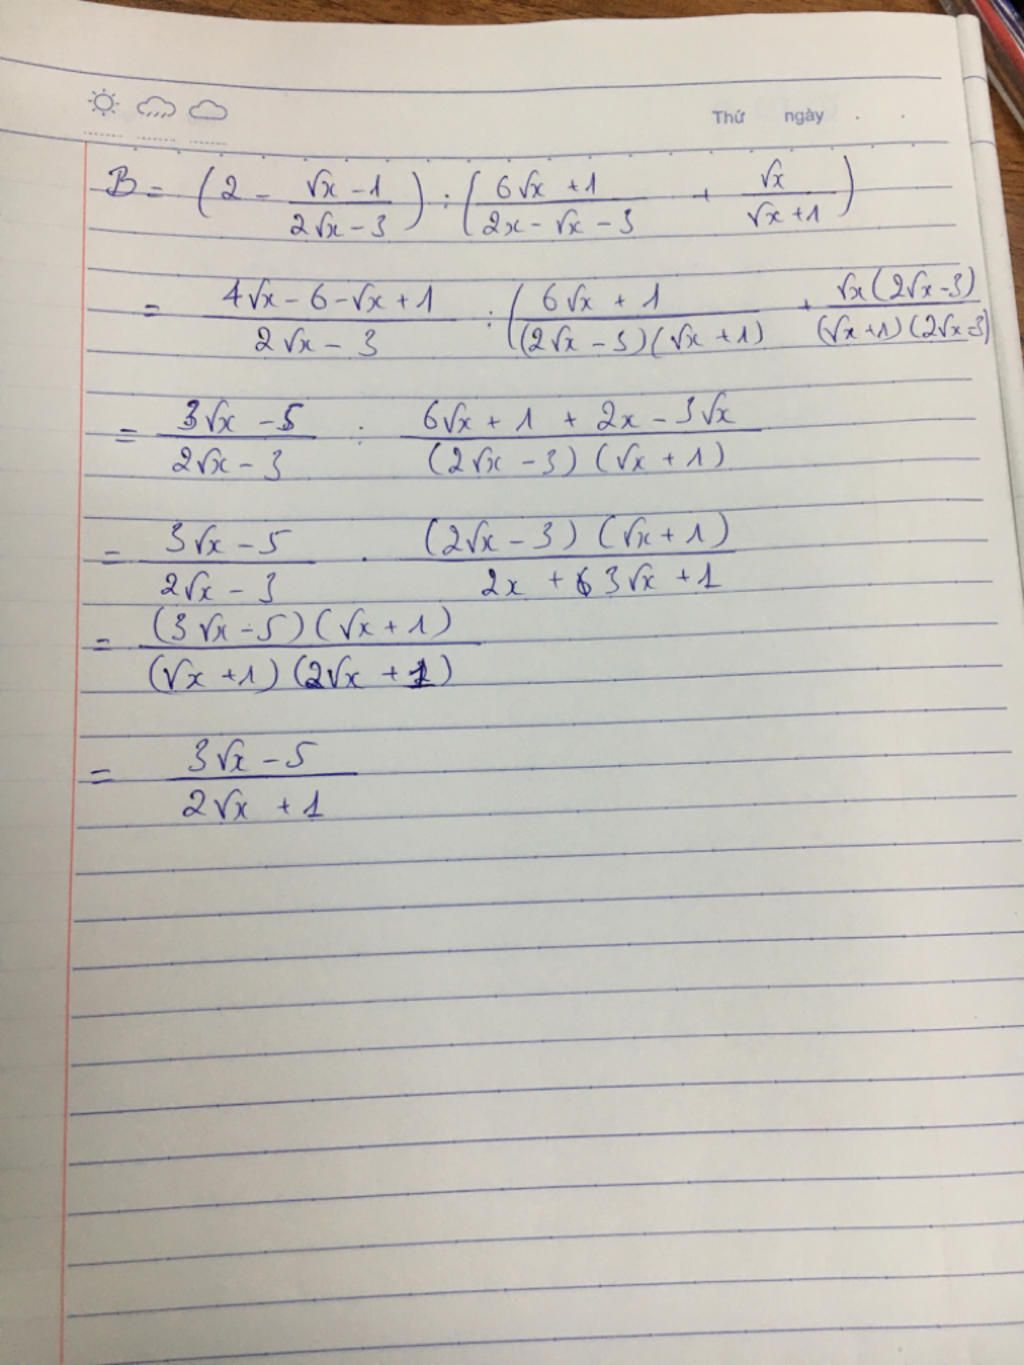 Thứ ngày
B = (2 - (√x - 1)/(2√x - 3)) : ((6√x + 1)/(2x - √x - 3) + √x/(√x + 1))
= (4√x - 6 - √x + 1)/(2√x - 3) : ((6√x + 1)/((2√x - 3)(√x + 1)) + √x(2√x - 3)/((√x + 1)(2√x - 3)
= (3√x - 5)/(2√x - 3) : (6√x + 1 + 2x - 3√x)/((2√x - 3)(√x + 1))
= (3√x - 5)/(2√x - 3) . ((2√x - 3)(√x + 1))/(2x + 3√x + 1)
= ((3√x - 5)(√x + 1))/((√x + 1)(2√x + 1))
= (3√x - 5)/(2√x + 1)